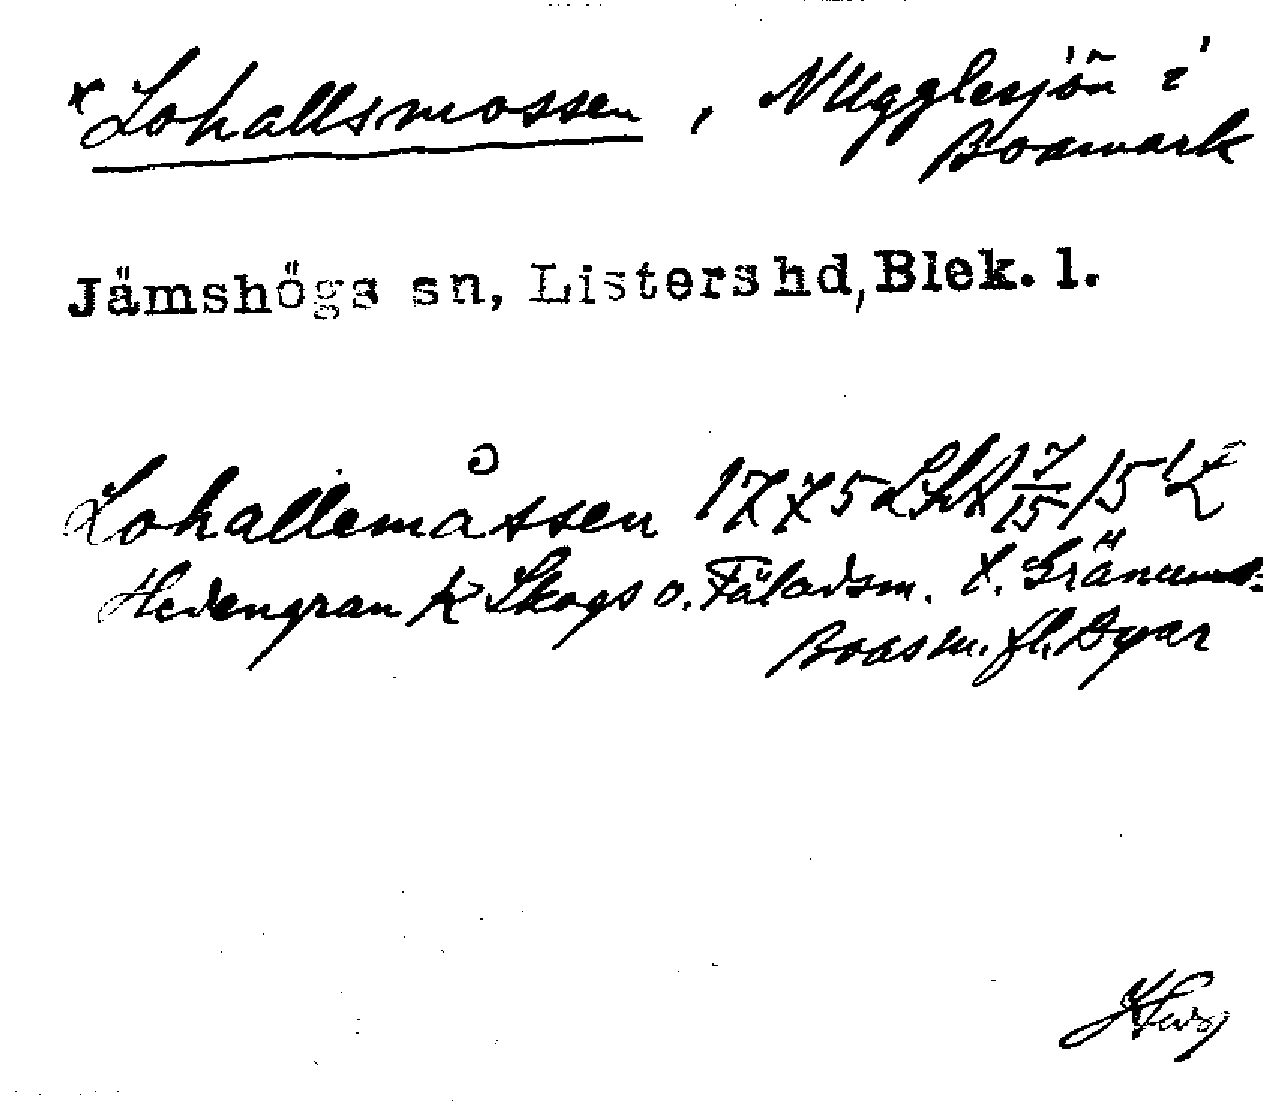 *Lohallsmossen, N Ugglesjön i
Boamark
Jämshögs sn, Listers hd, Blek. l.
Lohallemåssen 1775 LSA 7/15 15 K
Hedengran K Skogs o. Fäladsm. t. Gränums-
Boasm. fl. byar